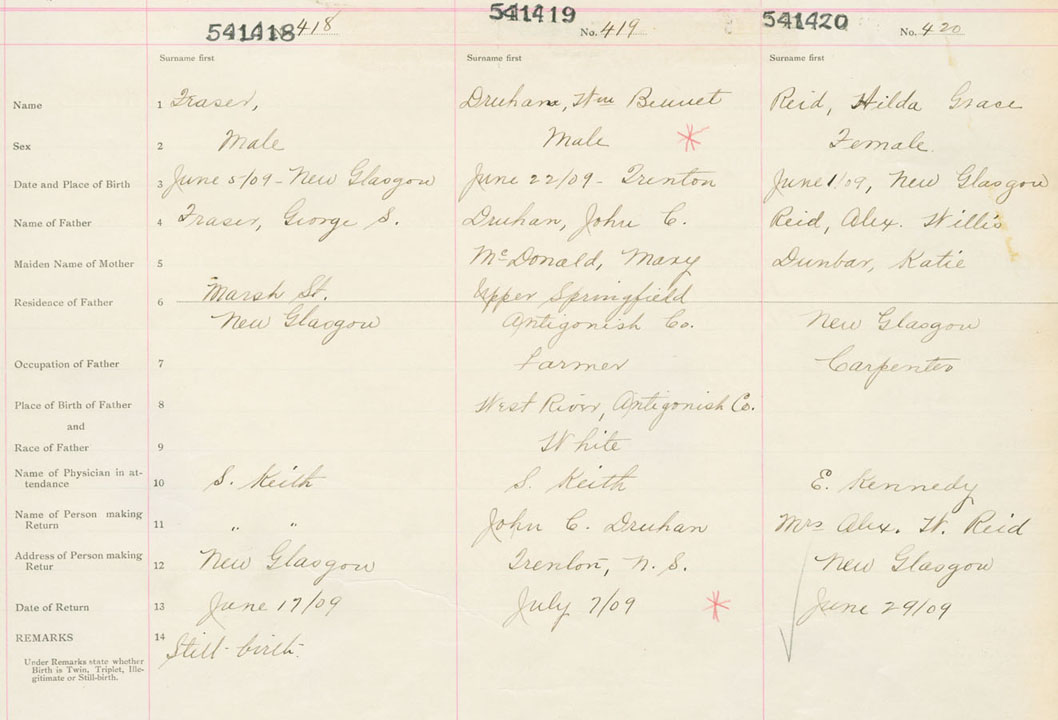 541418 418
541419
No. 419
541420
No. 420
Surname first
Surname first
Surname first
Name
1
Fraser,
Druhan, Wm Bennet
Reid, Hilda Grace
Sex
2
Male
Male
Female.
Date and Place of Birth
3
June 5/09 - New Glasgow
June 22/09 - Trenton
June 1/09, New Glasgow
Name of Father
4
Fraser, George S.
Druhan, John C.
Reid, Alex. Willis
Maiden Name of Mother
5
McDonald, Mary
Dunbar, Katie
Residence of Father
6
Marsh St.
New Glasgow
Upper Springfield
Antigonish Co.
New Glasgow
Occupation of Father
7
Farmer
Carpenter
Place of Birth of Father
8
West River, Antigonish Co.
and
Race of Father
9
White
Name of Physician in at-
tendance
10
S. Keith
S. Keith
E. Kennedy
Name of Person making
Return
11
" "
John C. Druhan
Mrs Alex. W. Reid
Address of Person making
Retur
12
New Glasgow
Trenton, N. S.
New Glasgow
Date of Return
13
June 17/09
July 7/09
June 29/09
REMARKS
14
Still-birth.
Under Remarks state whether
Birth is Twin, Triplet, Ille-
gitimate or Still-birth.